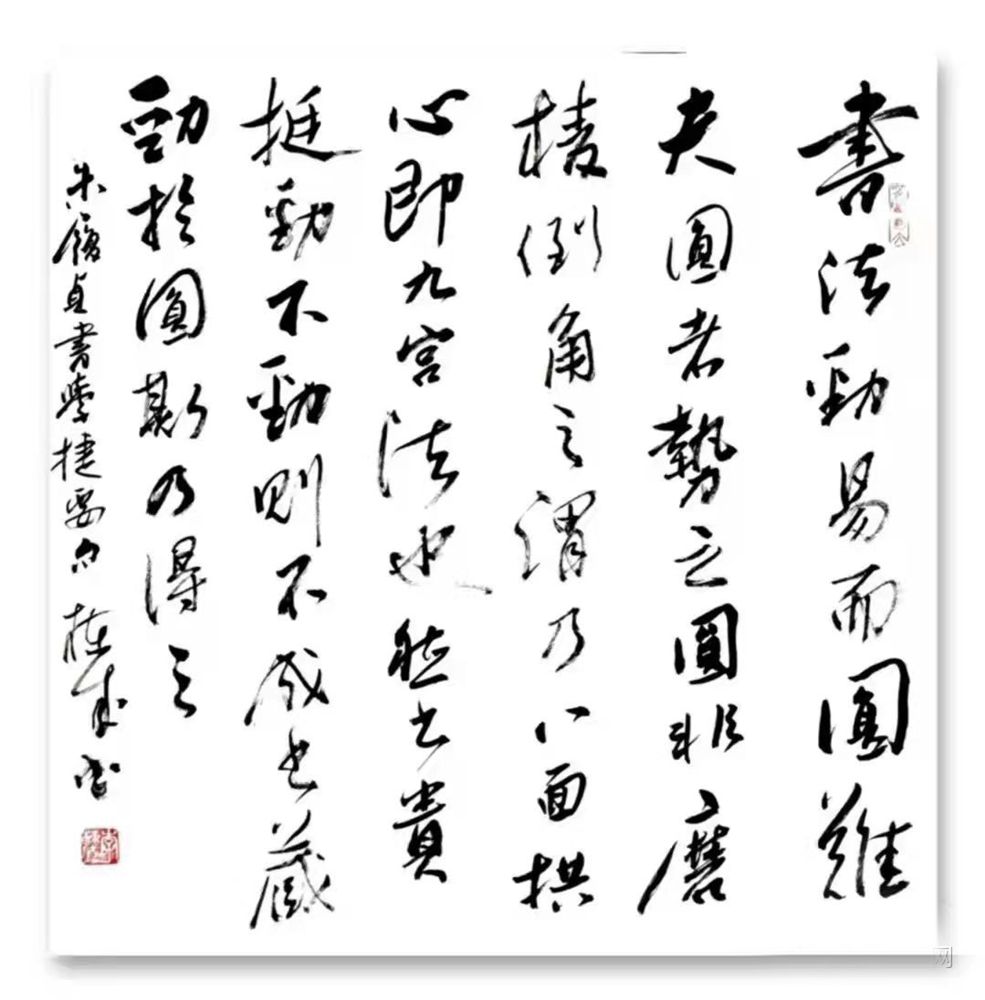 書法勁易而圓難
夫圓者勢之圓非磨
棱倒角之謂乃八面拱
心即九宮法也然書貴
挺勁不勁則不成書藏
勁於圓斯乃得之
朱履貞書學捷要句